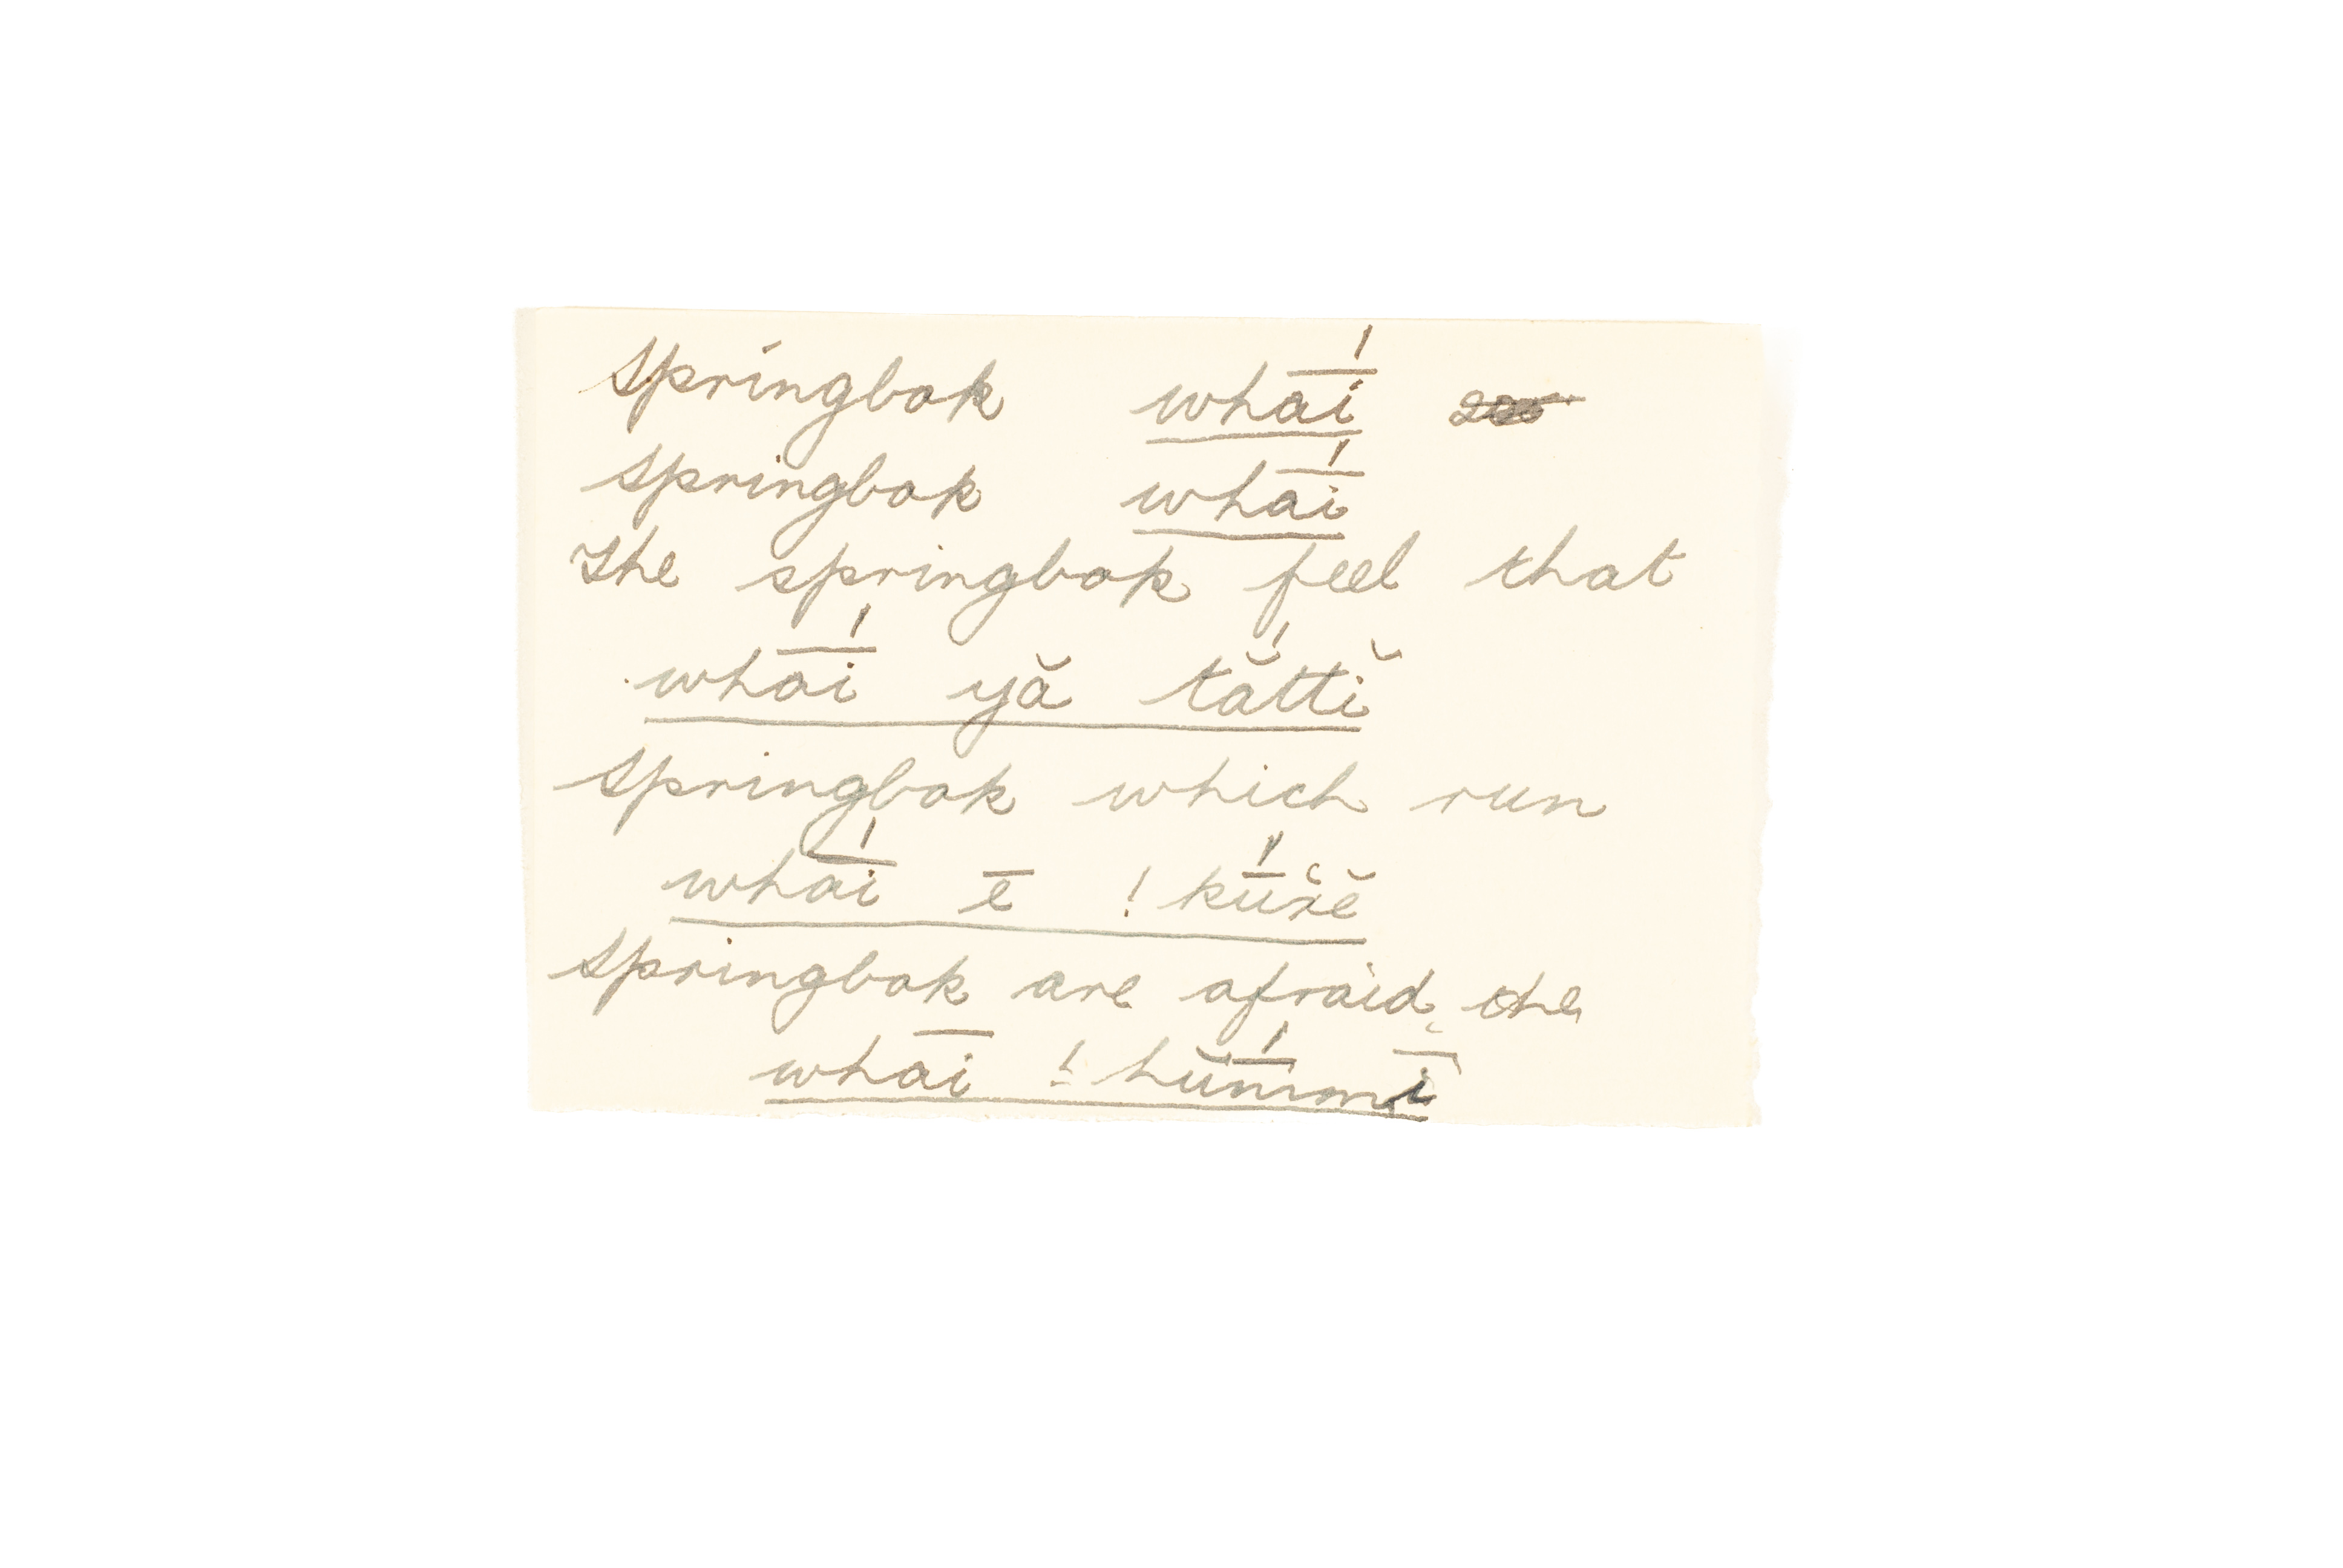 springbok whā́i
springbok whā́i
The springbok feel that
whā́i yă tắttĭ
springbok which run
whā́i ē !kū́ı̆rĕ
springbok are afraid, the
whāi !hŭm̄́mī